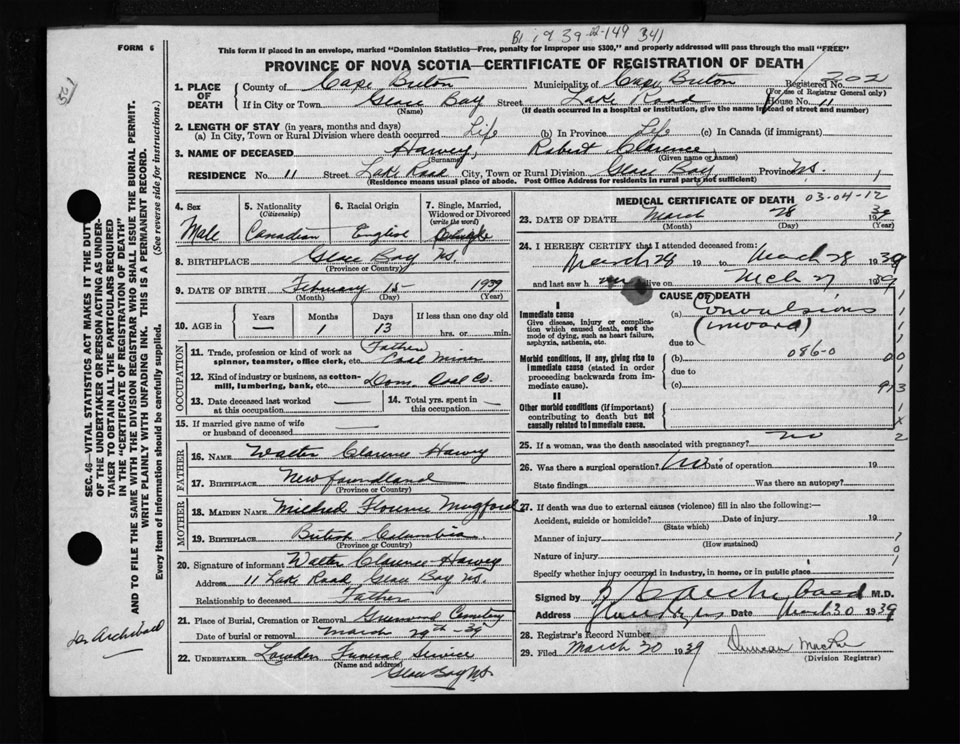 B1 1939-22-149 341
FORM 6
This form if placed in an envelope, marked "Dominion Statistics—Free, penalty for improper use $300," and properly addressed will pass through the mail "FREE"
PROVINCE OF NOVA SCOTIA—CERTIFICATE OF REGISTRATION OF DEATH
1. PLACE OF DEATH
County of Cape Breton Municipality of Cape Breton Registered No. 202
(For use of Registrar General only)
If in City or Town Glace Bay Street Lake Road House No. 11
(Name) (If death occurred in a hospital or institution, give the name instead of street and number)
2. LENGTH OF STAY (in years, months and days)
(a) In City, Town or Rural Division where death occurred Life (b) In Province Life (c) In Canada (if immigrant)
3. NAME OF DECEASED Harvey, Robert Clarence
(Surname) (Given name or names)
RESIDENCE No. 11 Street Lake Road City, Town or Rural Division Glace Bay, Province NS. 1
(Residence means usual place of abode. Post Office Address for residents in rural parts not sufficient)
4. Sex
Male
5. Nationality
(Citizenship)
Canadian
6. Racial Origin
English
7. Single, Married, Widowed or Divorced
(write the word)
Single
8. BIRTHPLACE Glace Bay NS.
(Province or Country)
9. DATE OF BIRTH February 15 1939
(Month) (Day) (Year)
10. AGE in
Years Months Days If less than one day old
— 1 13 hrs. or min.
OCCUPATION
11. Trade, profession or kind of work as spinner, teamster, office clerk, etc. Father Coal Miner
12. Kind of industry or business, as cotton-mill, lumbering, bank, etc. Dom. Coal Co.
13. Date deceased last worked at this occupation —
14. Total yrs. spent in this occupation —
15. If married give name of wife or husband of deceased —
FATHER
16. NAME Walter Clarence Harvey
17. BIRTHPLACE Newfoundland
(Province or Country)
MOTHER
18. MAIDEN NAME Mildred Florence Mugford
19. BIRTHPLACE British Columbia
(Province or Country)
20. Signature of informant Walter Clarence Harvey
Address 11 Lake Road, Glace Bay NS
Relationship to deceased Father
21. Place of Burial, Cremation or Removal Greenwood Cemetery
Date of burial or removal March 29th-39
22. UNDERTAKER Lowden Funeral Service
(Name and address)
Glace Bay NS.
MEDICAL CERTIFICATE OF DEATH 03-04-12
23. DATE OF DEATH March 28 1939
(Month) (Day) (Year)
24. I HEREBY CERTIFY that I attended deceased from:
March 28 19 to March 28 1939
and last saw h alive on Mch 27 1939
CAUSE OF DEATH
I
Immediate cause
Give disease, injury or complication which caused death, not the mode of dying, such as heart failure, asphyxia, asthenia, etc.
(a) Convulsions
(inward)
due to
Morbid conditions, if any, giving rise to immediate cause (stated in order proceeding backwards from immediate cause).
(b) 086-0
due to
(c) 913
II
Other morbid conditions (if important) contributing to death but not causally related to immediate cause.
25. If a woman, was the death associated with pregnancy? no
26. Was there a surgical operation? No Date of operation 19
State findings Was there an autopsy?
27. If death was due to external causes (violence) fill in also the following:—
Accident, suicide or homicide? Date of injury 19
(State which)
Manner of injury
(How sustained)
Nature of injury
Specify whether injury occurred in industry, in home, or in public place
Signed by Archibald M.D.
Address Date March 30 1939
28. Registrar's Record Number
29. Filed March 30 1939 Duncan MacRae
(Division Registrar)
SEC. 46—VITAL STATISTICS ACT MAKES IT THE DUTY
OF THE UNDERTAKER OR PERSON ACTING AS UNDER-
TAKER TO OBTAIN ALL THE PARTICULARS REQUIRED
IN THE "CERTIFICATE OF REGISTRATION OF DEATH"
AND TO FILE THE SAME WITH THE DIVISION REGISTRAR WHO SHALL ISSUE THE BURIAL PERMIT.
WRITE PLAINLY WITH UNFADING INK. THIS IS A PERMANENT RECORD.
Every item of information should be carefully supplied. (See reverse side for instructions.)
Archibald